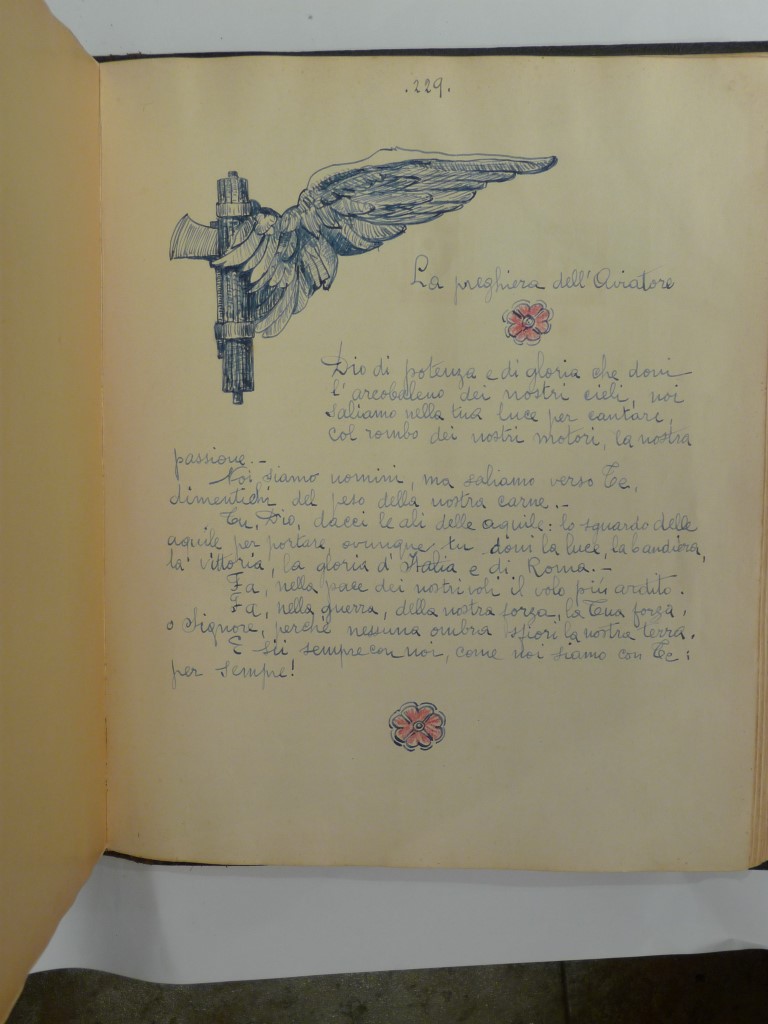 .229.
La preghiera dell'Aviatore
Dio di potenza e di gloria che doni
l'arcobaleno dei nostri cieli, noi
saliamo nella tua luce per cantare,
col rombo dei nostri motori, la nostra
passione.-
Noi siamo uomini, ma saliamo verso Te,
dimentichi del peso della nostra carne.-
Tu, Dio, dacci le ali delle aquile: lo sguardo delle
aquile per portare, ovunque, tu doni la luce, la bandiera,
la vittoria, la gloria d'Italia e di Roma.-
Fa, nella pace dei nostri voli il volo più ardito.
Fa, nella guerra, della nostra forza, la Tua forza,
o Signore, perchè nessuna ombra sfiori la nostra terra.
E sii sempre con noi, come noi siamo con Te:
per sempre!